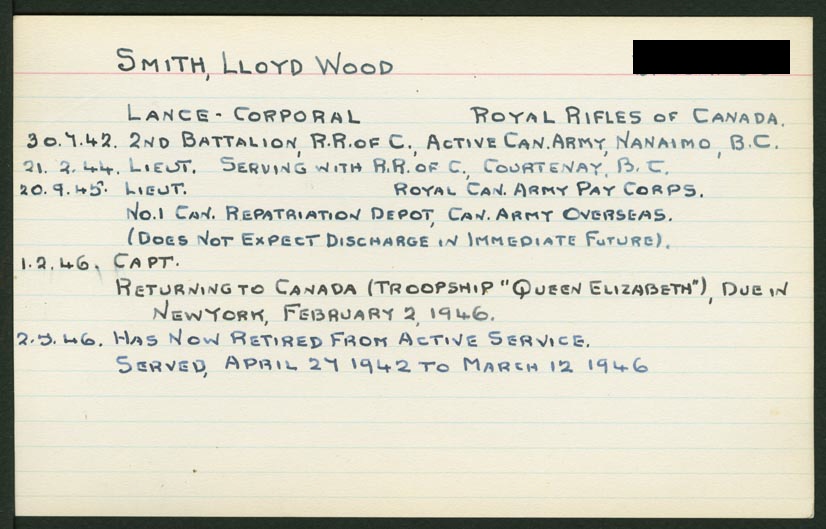 SMITH, LLOYD WOOD
LANCE-CORPORAL ROYAL RIFLES OF CANADA.
30.7.42. 2ND BATTALION, R.R. OF C., ACTIVE CAN. ARMY, NANAIMO, B.C.
21.2.44. LIEUT. SERVING WITH R.R. OF C., COURTENAY, B.C.
20.9.45. LIEUT. ROYAL CAN. ARMY PAY CORPS.
NO.1 CAN. REPATRIATION DEPOT, CAN. ARMY OVERSEAS.
(DOES NOT EXPECT DISCHARGE IN IMMEDIATE FUTURE).
1.2.46. CAPT.
RETURNING TO CANADA (TROOPSHIP "QUEEN ELIZABETH"), DUE IN
NEW YORK, FEBRUARY 2, 1946.
2.5.46. HAS NOW RETIRED FROM ACTIVE SERVICE.
SERVED, APRIL 27 1942 TO MARCH 12 1946